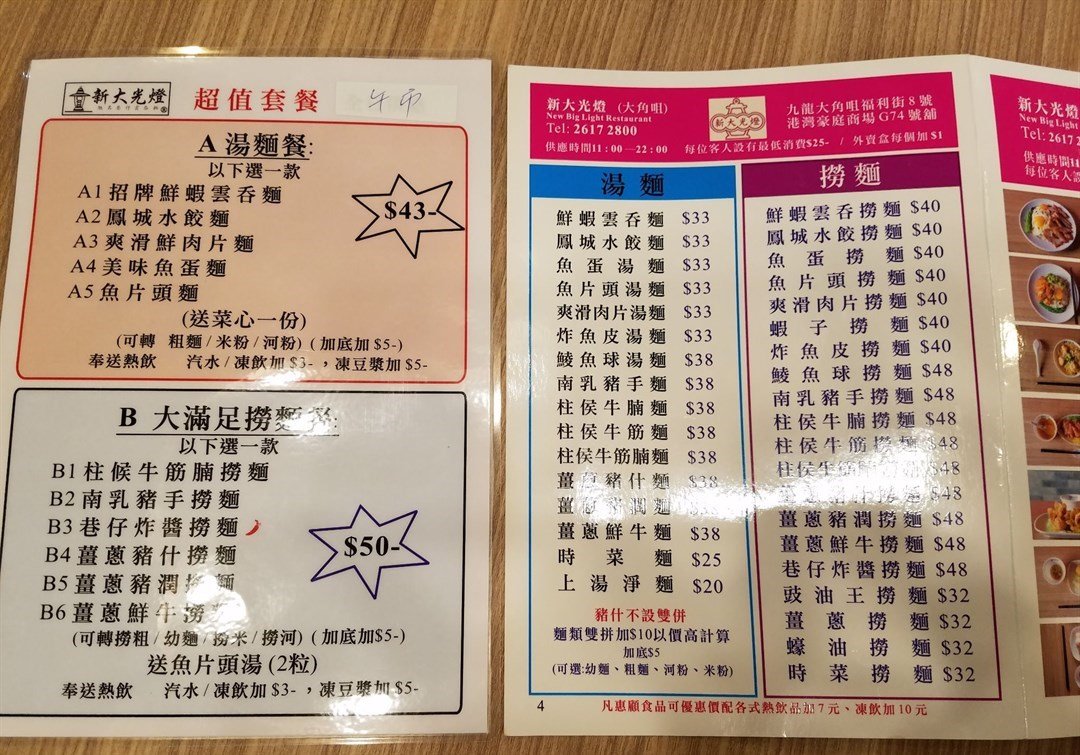 新大光燈
超值套餐
午市
A 湯麵餐:
以下選一款
A1 招牌鮮蝦雲吞麵
A2 鳳城水餃麵
A3 爽滑鮮肉片麵
A4 美味魚蛋麵
A5 魚片頭麵
$43-
(送菜心一份)
(可轉 粗麵/米粉/河粉) (加底加$5-)
奉送熱飲 汽水/凍飲加$3-，凍豆漿加$5-
B 大滿足撈麵餐:
以下選一款
B1 柱候牛筋腩撈麵
B2 南乳豬手撈麵
B3 巷仔炸醬撈麵
B4 薑蔥豬什撈麵
B5 薑蔥豬潤撈麵
B6 薑蔥鮮牛撈
$50-
(可轉撈粗/幼麵/撈米/撈河) (加底加$5-)
送魚片頭湯(2粒)
奉送熱飲 汽水/凍飲加$3-，凍豆漿加$5-
新大光燈 (大角咀)
New Big Light Restaurant
Tel: 2617 2800
供應時間11：00—22：00
新大光燈
九龍大角咀福利街8號
港灣豪庭商場G74號舖
每位客人設有最低消費$25- / 外賣盒每個加$1
湯麵
鮮蝦雲吞麵 $33
鳳城水餃麵 $33
魚蛋湯麵 $33
魚片頭湯麵 $33
爽滑肉片湯麵 $33
炸魚皮湯麵 $33
鯪魚球湯麵 $38
南乳豬手麵 $38
柱侯牛腩麵 $38
柱侯牛筋麵 $38
柱侯牛筋腩麵 $38
薑蔥豬什麵 $38
薑蔥豬潤麵
薑蔥鮮牛麵 $38
時菜麵 $25
上湯淨麵 $20
豬什不設雙併
麵類雙拼加$10以價高計算
加底$5
(可選:幼麵、粗麵、河粉、米粉)
撈麵
鮮蝦雲吞撈麵 $40
鳳城水餃撈麵 $40
魚蛋撈麵 $40
魚片頭撈麵 $40
爽滑肉片撈麵 $40
蝦子撈麵 $40
炸魚皮撈麵 $40
鯪魚球撈麵 $48
南乳豬手撈麵 $48
柱侯牛腩撈麵 $48
柱侯牛筋撈麵 $48
柱侯牛筋 $48
撈麵 $48
薑蔥豬潤撈麵 $48
薑蔥鮮牛撈麵 $48
巷仔炸醬撈麵 $48
豉油王撈麵 $32
薑蔥撈麵 $32
蠔油撈麵 $32
時菜撈麵 $32
4
凡惠顧食品可優惠價配各式熱飲品加7元、凍飲加10元
新大光燈
New Big Light
Tel: 2617 2
供應時間11
每位客人設